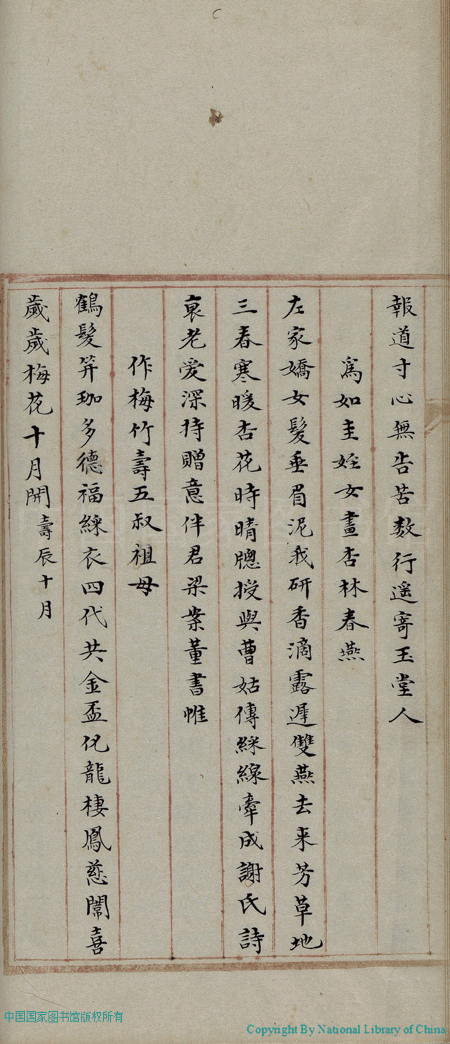 報道寸心無告苦数行遥寄玉堂人
爲如圭姪女畫杏林春燕
左家嬌女髮垂眉泥我研香滴露遲雙燕去来芳草地
三春寒暖杏花時晴牕授與曹姑傳綵線牽成謝氏詩
衰老愛深持贈意伴君梁案董書帷
作梅竹壽五叔祖母
鶴髮笄珈多德福綵衣四代共金盃化龍棲鳳慈闈喜
歲歲梅花十月開壽辰十月
中国国家图书馆版权所有
Copyright By National Library of China